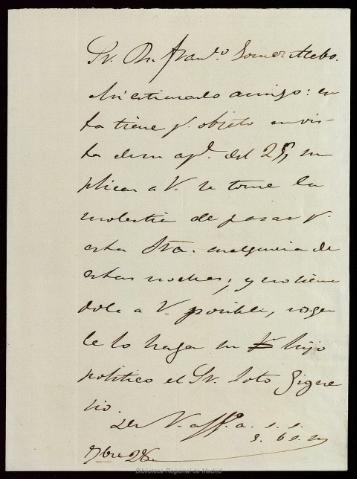 Sr. Dn. Franco. Gomez Acebo.
Mi estimado amigo: en
ta tiene pr. objeto en vis
ta de su apte. del 25, su
plicar a V. se tome la
molestia de pasar pr.
esta Sra. cualquiera de
estas noches; y no sien
dole a V. posible, rogar
le lo haga su hijo
politico el Sr. Soto
De V. affo. a. s. s.
Biblioteca Regional de Madrid